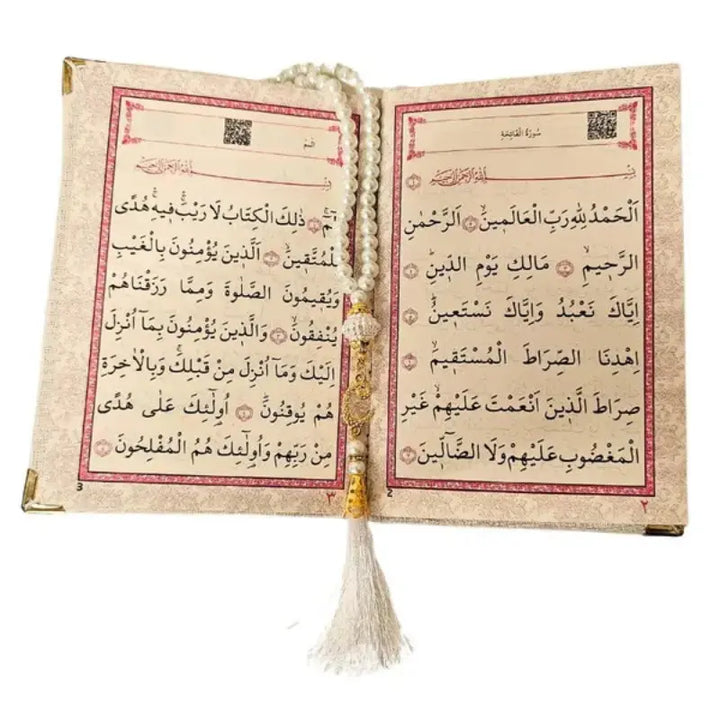 سُورَةُ الْفَاتِحَةِ
اَلْحَمْدُ لِلّٰهِ رَبِّ الْعَالَمِينَۙ ﴿٢﴾ اَلرَّحْمٰنِ
الرَّحِيمِۙ ﴿٣﴾ مَالِكِ يَوْمِ الدِّينِۜ ﴿٤﴾
اِيَّاكَ نَعْبُدُ وَاِيَّاكَ نَسْتَعِينُۜ ﴿٥﴾
اِهْدِنَا الصِّرَاطَ الْمُسْتَقِيمَۙ ﴿٦﴾
صِرَاطَ الَّذِينَ اَنْعَمْتَ عَلَيْهِمْۙ غَيْرِ
الْمَغْضُوبِ عَلَيْهِمْ وَلَا الضَّٓالِّينَ ﴿٧﴾
2 ٢
الٓمٓۜ ﴿١﴾ ذٰلِكَ الْكِتَابُ لَا رَيْبَۚۛ فِيهِۚۛ هُدًى
لِلْمُتَّقِينَۙ ﴿٢﴾ اَلَّذِينَ يُؤْمِنُونَ بِالْغَيْبِ
وَيُقِيمُونَ الصَّلٰوةَ وَمِمَّا رَزَقْنَاهُمْ
يُنْفِقُونَۙ ﴿٣﴾ وَالَّذِينَ يُؤْمِنُونَ بِمَٓا اُنْزِلَ
اِلَيْكَ وَمَٓا اُنْزِلَ مِنْ قَبْلِكَۚ وَبِالْاٰخِرَةِ
هُمْ يُوقِنُونَۜ ﴿٤﴾ اُو۬لٰٓئِكَ عَلٰى هُدًى
مِنْ رَبِّهِمْ وَاُو۬لٰٓئِكَ هُمُ الْمُفْلِحُونَ ﴿٥﴾
3 ٣